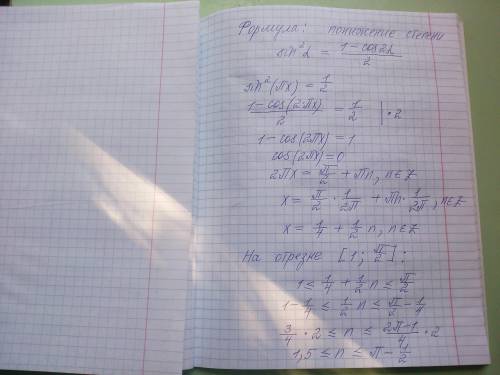 Формула: понижение степени
sin²α = (1-cos2α)/2
sin²(πx) = 1/2
(1-cos(2πx))/2 = 1/2 | ·2
1-cos(2πx) = 1
cos(2πx) = 0
2πx = π/2 + πn, n∈Z
x = π/2 · 1/2π + πn · 1/2π, n∈Z
x = 1/4 + 1/2 n, n∈Z
На отрезке [1; π/2]:
1 ≤ 1/4 + 1/2 n ≤ π/2
1 - 1/4 ≤ 1/2 n ≤ π/2 - 1/4
3/4 · 2 ≤ n ≤ (2π-1)/4 · 2
1,5 ≤ n ≤ π - 1/2